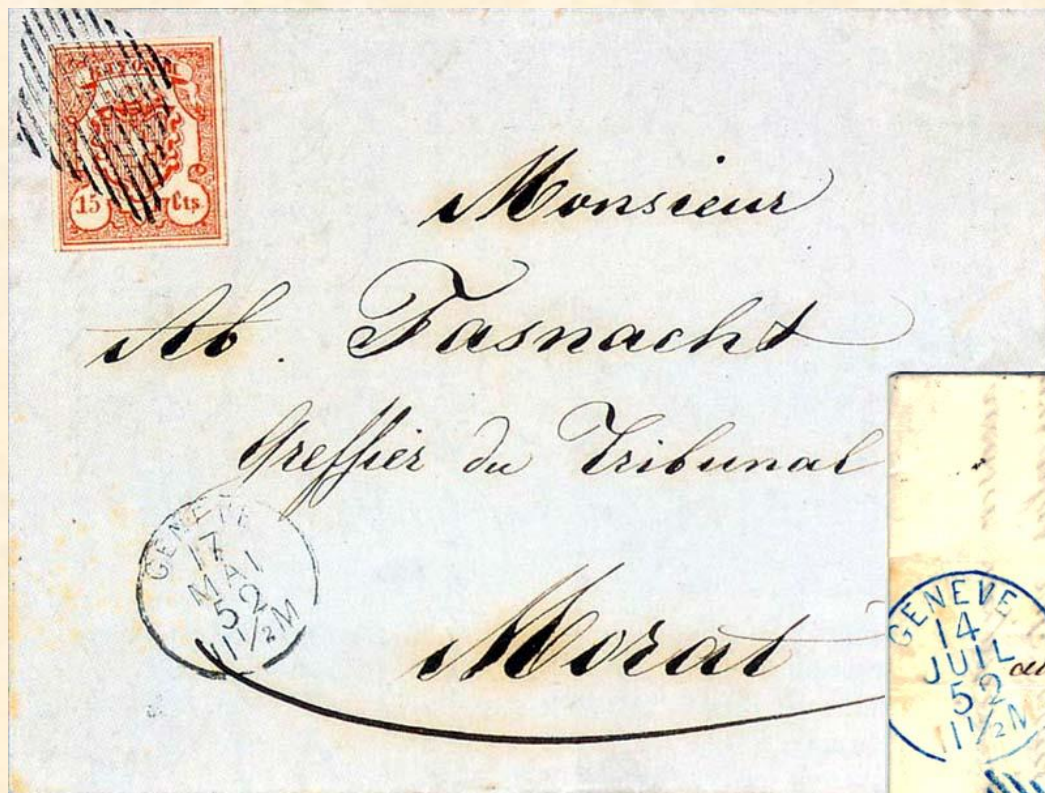 15
Cts
Monsieur
Ab. Fasnacht
Greffier du Tribunal
Morat
GENEVE
17
MAI
52
11½M
GENEVE
14
JUIL
52
11½M